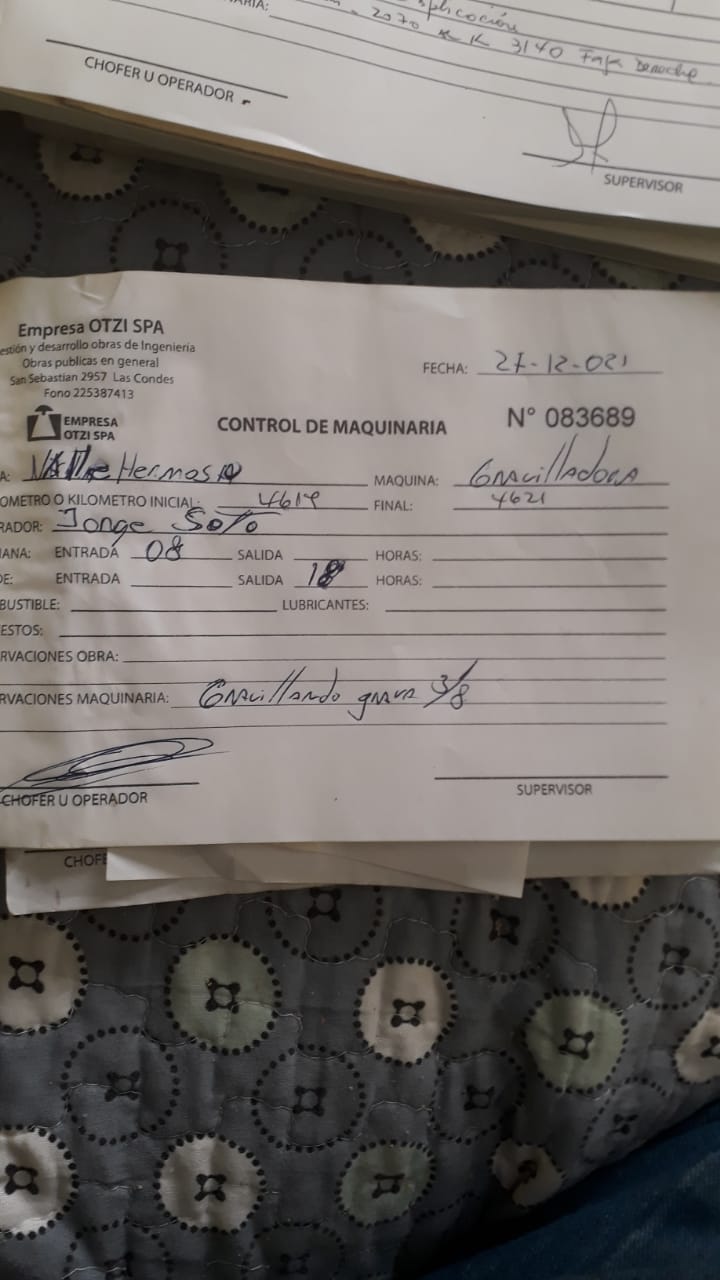 ARIA:
plicación
2070 al K 3140 Faja Derecha
CHOFER U OPERADOR
SUPERVISOR
Empresa OTZI SPA
estión y desarrollo obras de Ingeniería
Obras publicas en general
San Sebastian 2957 Las Condes
Fono 225387413
FECHA: 27-12-021
EMPRESA
OTZI SPA
CONTROL DE MAQUINARIA
N° 083689
A: Valle Hermoso MAQUINA: Gravilladora
OMETRO O KILOMETRO INICIAL: 4619 FINAL: 4621
RADOR: Jorge Soto
ANA: ENTRADA 08 SALIDA HORAS:
DE: ENTRADA SALIDA 18 HORAS:
BUSTIBLE: LUBRICANTES:
ESTOS:
RVACIONES OBRA:
RVACIONES MAQUINARIA: Gravillando grava 3/8
CHOFER U OPERADOR
SUPERVISOR
CHOFE